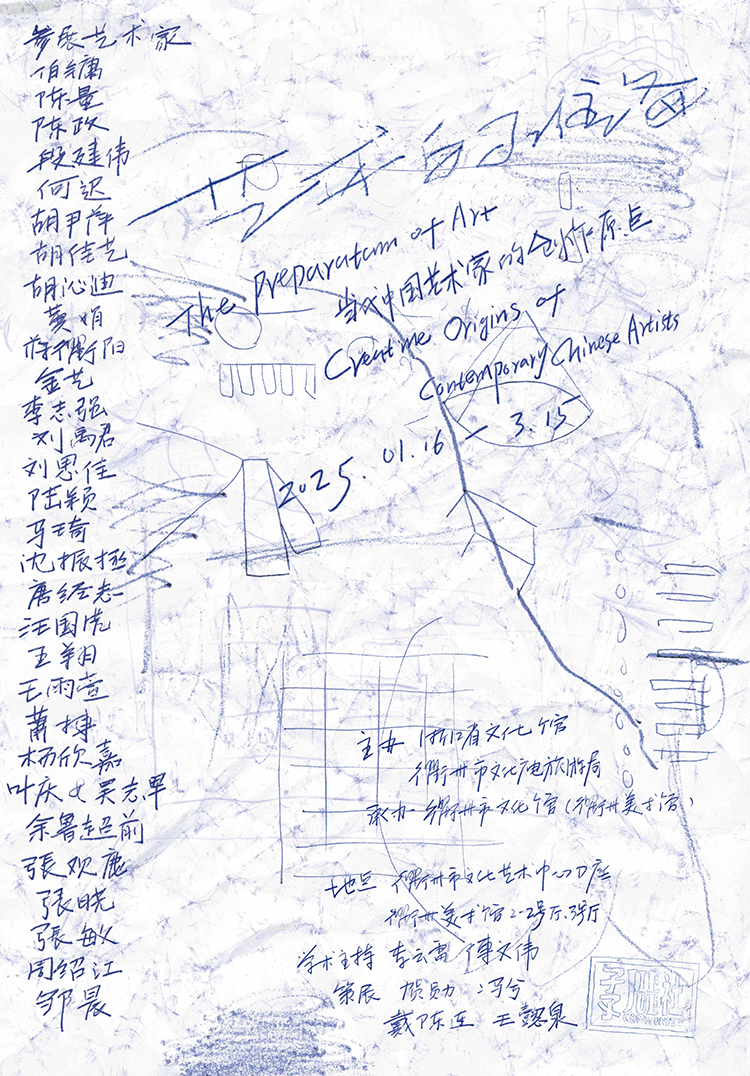 参展艺术家
伯镛
陈量
陈政
段建伟
何迟
胡尹萍
胡佳艺
胡沁迪
黄娟
蒋衢阳
金艺
李志强
刘禹君
刘思佳
陆颖
马琦
沈振拯
唐经志
汪国虎
王翔
王雨萱
萧搏
杨欣嘉
叶庆 & 吴志军
余晷超前
張欢鹿
張晓
張敏
周绍江
邹晨
艺术的准备
The Preparatum of Art
当代中国艺术家的创作原点
Creatme Origins of
Contemporary Chinese Artists
2025.01.16 — 3.15
主办 浙江省文化馆
衢州市文化广电旅游局
承办 衢州市文化馆(衢州美术馆)
地点 衢州市文化艺术中心D座
衢州美术馆2-2号厅、3号厅
学术主持 李云雷 傅文伟
策展 贺勋 冯兮
戴陈连 王懿泉